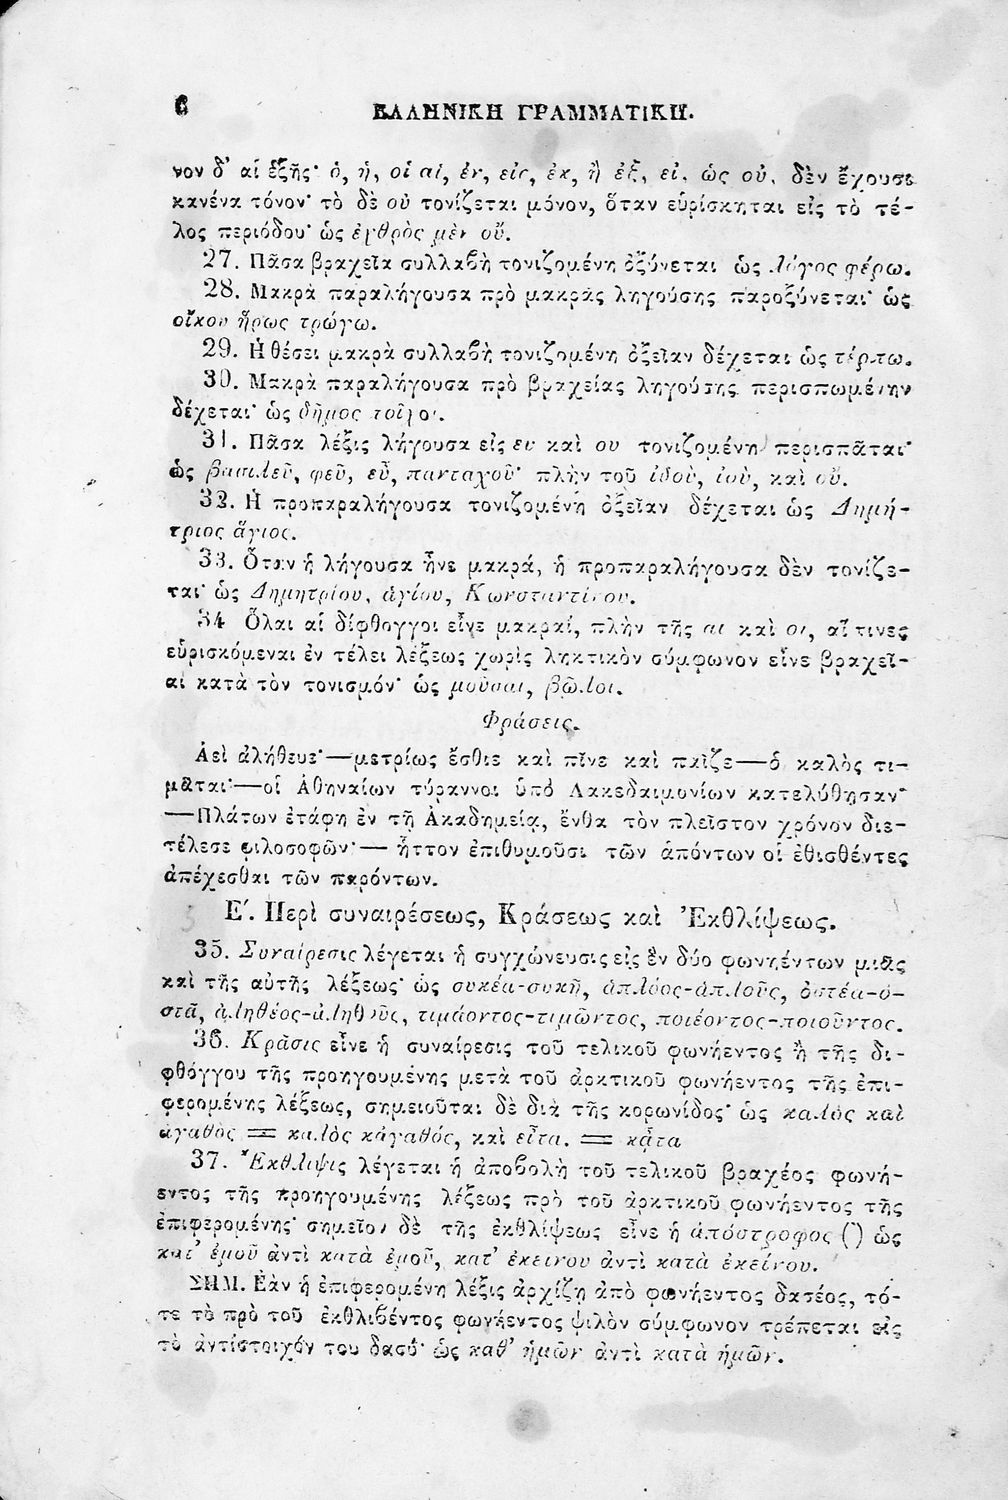 6 ΕΛΛΗΝΙΚΗ ΓΡΑΜΜΑΤΙΚΗ.
νον δ' αἱ ἑξῆς· ὁ, ἡ, οἱ αἱ, ἐν, εἰς, ἐκ, ἢ ἐξ, εἰ, ὡς οὐ, δὲν ἔχουσι
κανένα τόνον· τὸ δὲ οὐ τονίζεται μόνον, ὅταν εὑρίσκηται εἰς τὸ τέ-
λος περιόδου· ὡς ἐχθρὸς μὲν οὔ.
27. Πᾶσα βραχεῖα συλλαβὴ τονιζομένη ὀξύνεται ὡς λόγος φέρω.
28. Μακρὰ παραλήγουσα πρὸ μακρᾶς ληγούσης παροξύνεται· ὡς
οἴκου ἥρως τρώγω.
29. Ἡ θέσει μακρὰ συλλαβὴ τονιζομένη ὀξεῖαν δέχεται ὡς τέρπω.
30. Μακρὰ παραλήγουσα πρὸ βραχείας ληγούσης περισπωμένην
δέχεται· ὡς δῆμος τοῖχοι.
31. Πᾶσα λέξις λήγουσα εἰς ευ καὶ ου τονιζομένη περισπᾶται·
ὡς βασιλεῦ, φεῦ, εὖ, πανταχοῦ· πλὴν τοῦ ἰδοὺ, ἰοὺ, καὶ οὔ.
32. Ἡ προπαραλήγουσα τονιζομένη ὀξεῖαν δέχεται ὡς Δημή-
τριος ἅγιος.
33. Ὅταν ἡ λήγουσα ἦνε μακρά, ἡ προπαραλήγουσα δὲν τονίζε-
ται· ὡς Δημητρίου, ἁγίου, Κωνσταντίνου.
34 Ὅλαι αἱ δίφθογγοι εἶνε μακραί, πλὴν τῆς αι καὶ οι, αἵ τινες
εὑρισκόμεναι ἐν τέλει λέξεως χωρὶς ληκτικὸν σύμφωνον εἶνε βραχεῖ-
αι κατὰ τὸν τονισμόν· ὡς μοῦσαι, βῶλοι.
Φράσεις.
Ἀεὶ ἀλήθευε·—μετρίως ἔσθιε καὶ πῖνε καὶ παῖζε—ὁ καλὸς τι-
μᾶται·—οἱ Ἀθηναίων τύραννοι ὑπὸ Λακεδαιμονίων κατελύθησαν·
—Πλάτων ἐτάφη ἐν τῇ Ἀκαδημείᾳ, ἔνθα τὸν πλεῖστον χρόνον διε-
τέλεσε φιλοσοφῶν·— ἧττον ἐπιθυμοῦσι τῶν ἀπόντων οἱ ἐθισθέντες
ἀπέχεσθαι τῶν παρόντων.
Ε΄. Περὶ συναιρέσεως, Κράσεως καὶ Ἐκθλίψεως.
35. Συναίρεσις λέγεται ἡ συγχώνευσις εἰς ἓν δύο φωνηέντων μιᾶς
καὶ τῆς αὐτῆς λέξεως· ὡς συκέα-συκῆ, ἁπλόος-ἁπλοῦς, ὀστέα-ὀ-
στᾶ, ἀληθέος-ἀληθοῦς, τιμάοντος-τιμῶντος, ποιέοντος-ποιοῦντος.
36. Κρᾶσις εἶνε ἡ συναίρεσις τοῦ τελικοῦ φωνήεντος ἢ τῆς δι-
φθόγγου τῆς προηγουμένης μετὰ τοῦ ἀρκτικοῦ φωνήεντος τῆς ἐπι-
φερομένης λέξεως, σημειοῦται δὲ διὰ τῆς κορωνίδος· ὡς καλὸς καὶ
ἀγαθὸς = καλὸς κἀγαθός, καὶ εἶτα. = κᾆτα
37. Ἔκθλιψις λέγεται ἡ ἀποβολὴ τοῦ τελικοῦ βραχέος φωνή-
εντος τῆς προηγουμένης λέξεως πρὸ τοῦ ἀρκτικοῦ φωνήεντος τῆς
ἐπιφερομένης· σημεῖον δὲ τῆς ἐκθλίψεως εἶνε ἡ ἀπόστροφος () ὡς
κατ' ἐμοῦ ἀντὶ κατὰ ἐμοῦ, κατ' ἐκείνου ἀντὶ κατὰ ἐκείνου.
ΣΗΜ. Ἐὰν ἡ ἐπιφερομένη λέξις ἀρχίζῃ ἀπὸ φωνήεντος δασέος, τό-
τε τὸ πρὸ τοῦ ἐκθλιβέντος φωνήεντος ψιλὸν σύμφωνον τρέπεται εἰς
τὸ ἀντίστοιχόν του δασύ· ὡς καθ' ἡμῶν ἀντὶ κατὰ ἡμῶν.